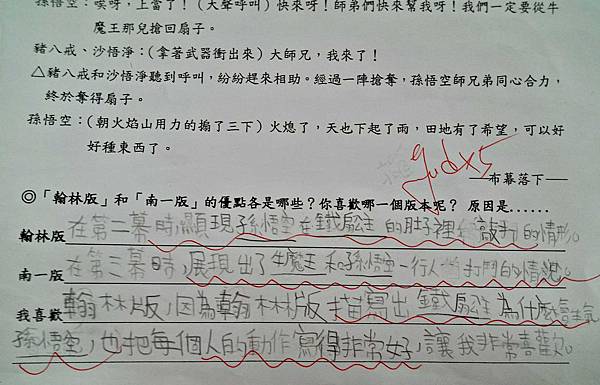 孫悟空：唉呀，上當了！（大聲呼叫）快來呀！師弟們快來幫我呀！我們一定要從牛
魔王那兒搶回扇子。
豬八戒、沙悟淨：（拿著武器衝出來）大師兄，我來了！
△豬八戒和沙悟淨聽到呼叫，紛紛趕來相助。經過一陣搶奪，孫悟空師兄弟同心合力，
終於奪得扇子。
孫悟空：（朝火焰山用力的搧了三下）火熄了，天也下起了雨，田地有了希望，可以好
好種東西了。
——布幕落下——
◎「翰林版」和「南一版」的優點各是哪些？你喜歡哪一個版本呢？ 原因是……
翰林版 在第二幕時，顯現孫悟空在鐵扇公主的肚子裡敲打的情形。
南一版 在第三幕時，展現出了牛魔王和孫悟空一行人打鬥的情況。
我喜歡 翰林版，因為翰林版描寫出鐵扇公主為什麼會生氣
孫悟空，也把每個人的動作寫得非常好，讓我非常喜歡。